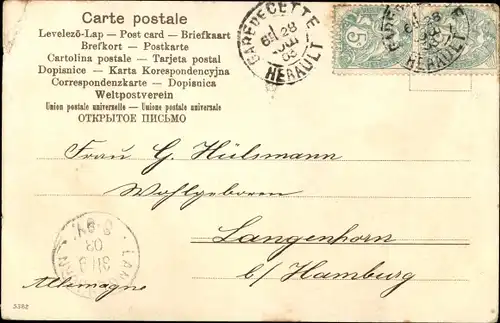 Carte postale
Levelező-Lap — Post card — Briefkaart
Brefkort — Postkarte
Cartolina postale — Tarjeta postal
Dopisnice - Karta Korespondencyjna
Correspondenzkarte - Dopisnica
Weltpostverein
Union postale universelle — Unione postale universale
ОТКРЫТОЕ ПИСЬМО
GARE DE CETTE
28
03
HERAULT
5
GARE DE CETTE
28
HERAULT
Frau G. Hülsmann
Wohlgeboren
Langenhorn
b/ Hamburg
Allemagne
LAN
31/8
03
3382